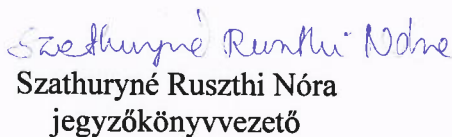 Szathuryné Ruszthi Nóra
Szathuryné Ruszthi Nóra
jegyzőkönyvvezető